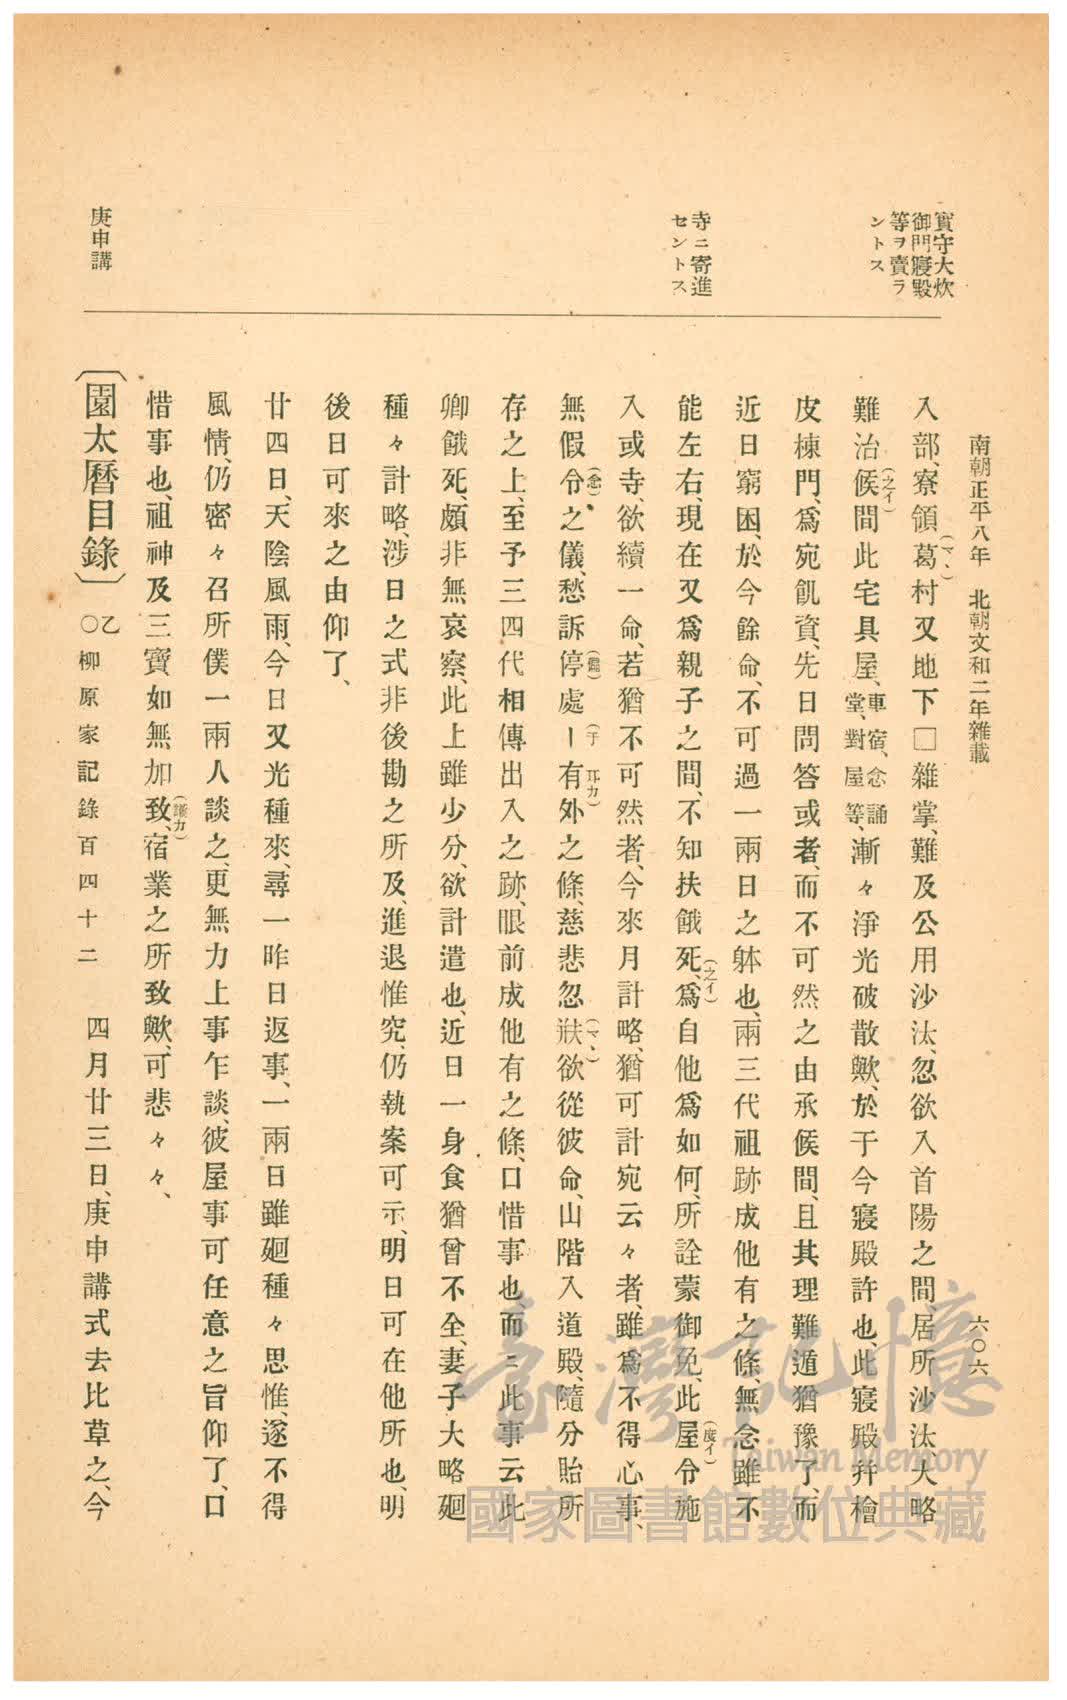 南朝正平八年　北朝文和二年雜載
六〇六
實守大炊
御門寢殿
等ヲ賣ラ
ントス
寺ニ寄進
セントス
庚申講
入部、寮領葛(マヽ)村又地下□雜掌、難及公用沙汰、忽欲入首陽之間居所沙汰大略
難治候(之イ)間此宅具屋、車宿、念誦堂、對屋等、漸々淨光破散歟、於于今寢殿許也、此寢殿幷檜
皮棟門、爲宛飢資、先日問答或者、而不可然之由承候間、且其理難遁猶豫了、而
近日窮困、於今餘命、不可過一兩日之躰也、兩三代祖跡成他有之條、無念雖不
能左右、現在又爲親子之間、不知扶餓死、(之イ)爲自他爲如何、所詮蒙御免、此屋(度イ)令施
入或寺、欲續一命、若猶不可然者、今來月計略、猶可計宛云々者、雖爲不得心事、
無假令(念)之儀、愁訴停處ー(于)有(耳カ)外之條、慈悲忽狀(マヽ)欲從彼命、山階入道殿、隨分貽所
存之上、至予三四代相傳出入之跡、眼前成他有之條、口惜事也而ニ此事云此
卿餓死、頗非無哀察、此上雖少分、欲計遣也、近日一身食猶曾不全、妻子大略廻
種々計略、涉日之式非後勘之所及、進退惟究、仍執案可示、明日可在他所也、明
後日可來之由仰了、
廿四日、天陰風雨、今日又光種來、尋一昨日返事、一兩日雖廻種々思惟、遂不得
風情、仍密々召所僕一兩人談之、更無力上事乍談、彼屋事可任意之旨仰了、口
惜事也、祖神及三寶如無加致、(護カ)宿業之所致歟、可悲々々、
〔園太曆目錄〕○乙柳原家記錄百四十二　四月廿三日、庚申講式去比草之、今
臺灣記憶
Taiwan Memory
國家圖書館數位典藏